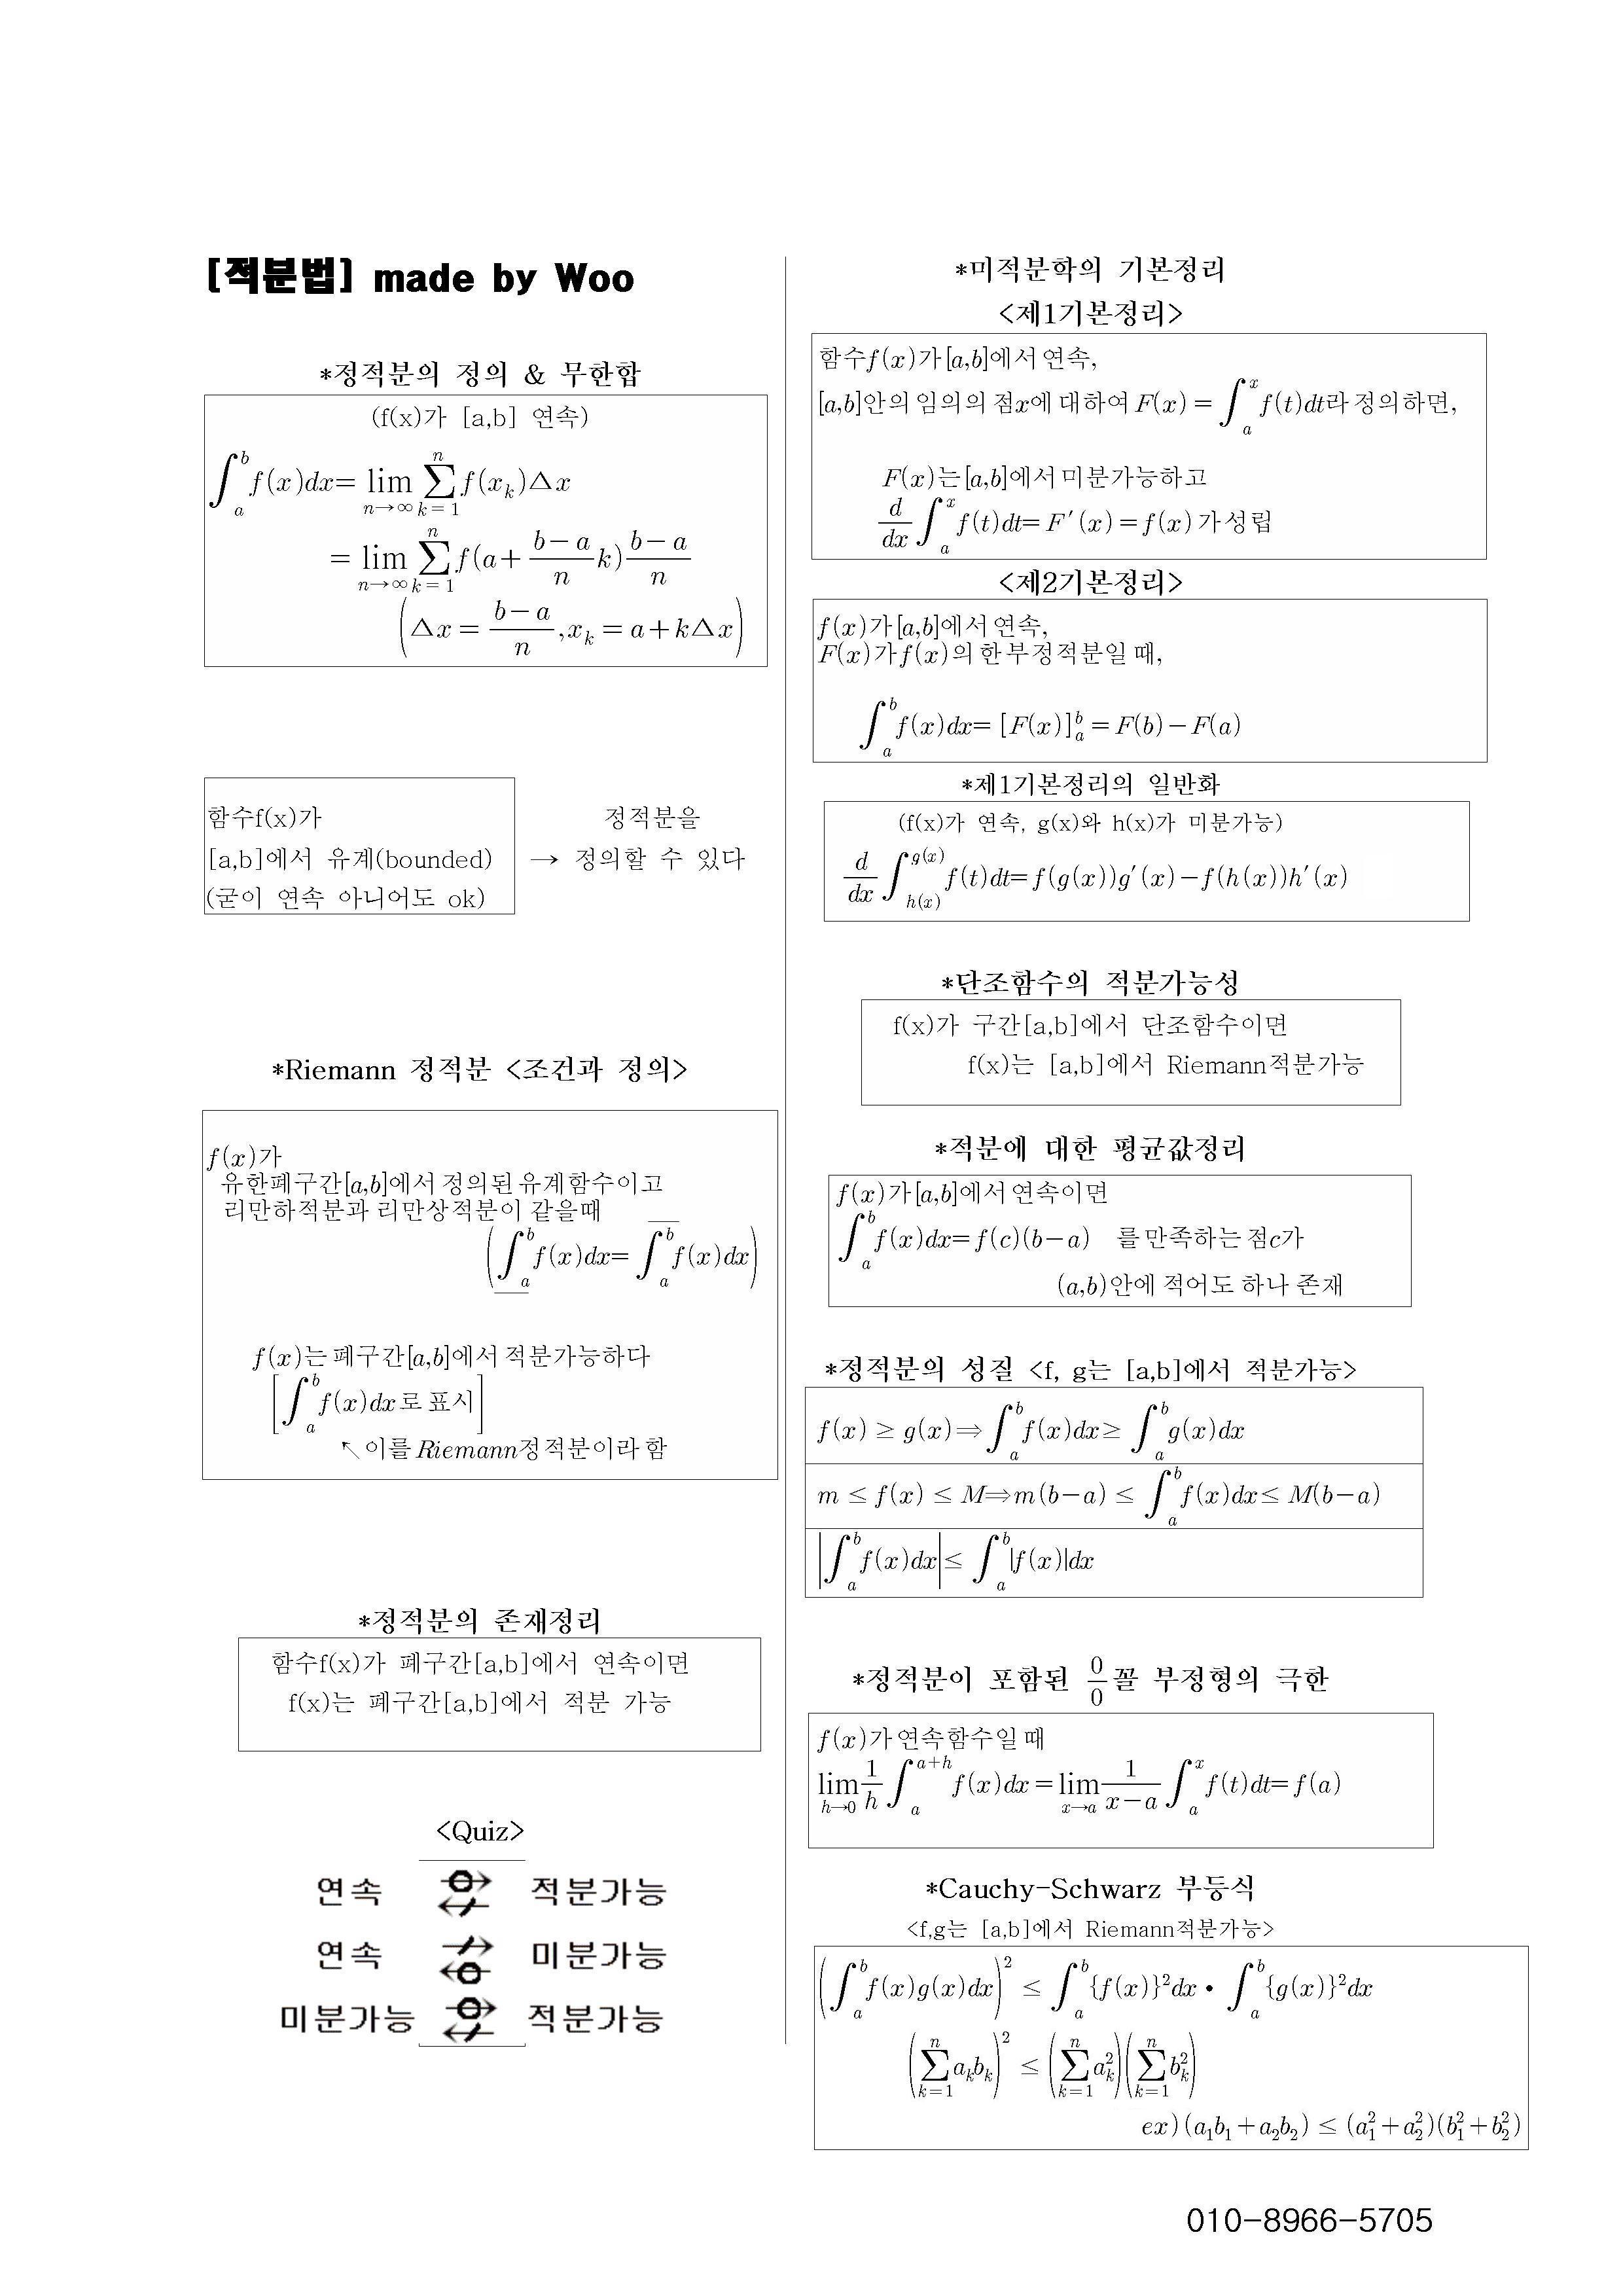 [적분법] made by Woo
*정적분의 정의 & 무한합
(f(x)가 [a,b] 연속)
∫_a^b f(x)dx = lim_{n→∞} ∑_{k=1}^n f(x_k)△x
= lim_{n→∞} ∑_{k=1}^n f(a + \frac{b-a}{n}k)\frac{b-a}{n}
(△x = \frac{b-a}{n}, x_k = a + k△x)
함수f(x)가
[a,b]에서 유계(bounded)
(굳이 연속 아니어도 ok)
정적분을
→ 정의할 수 있다
*Riemann 정적분 <조건과 정의>
f(x)가
유한폐구간[a,b]에서 정의된 유계함수이고
리만하적분과 리만상적분이 같을때
(\underline{∫}_a^b f(x)dx = \overline{∫}_a^b f(x)dx)
f(x)는 폐구간[a,b]에서 적분가능하다
[∫_a^b f(x)dx로 표시]
↖이를 Riemann정적분이라 함
*정적분의 존재정리
함수f(x)가 폐구간[a,b]에서 연속이면
f(x)는 폐구간[a,b]에서 적분 가능
<Quiz>
연속 적분가능
연속 미분가능
미분가능 적분가능
*미적분학의 기본정리
<제1기본정리>
함수f(x)가[a,b]에서 연속,
[a,b]안의 임의의 점x에 대하여 F(x) = ∫_a^x f(t)dt라 정의하면,
F(x)는[a,b]에서 미분가능하고
\frac{d}{dx}∫_a^x f(t)dt = F′(x) = f(x)가 성립
<제2기본정리>
f(x)가[a,b]에서 연속,
F(x)가 f(x)의 한 부정적분일 때,
∫_a^b f(x)dx = [F(x)]_a^b = F(b) − F(a)
*제1기본정리의 일반화
(f(x)가 연속, g(x)와 h(x)가 미분가능)
\frac{d}{dx}∫_{h(x)}^{g(x)} f(t)dt = f(g(x))g′(x) − f(h(x))h′(x)
*단조함수의 적분가능성
f(x)가 구간[a,b]에서 단조함수이면
f(x)는 [a,b]에서 Riemann적분가능
*적분에 대한 평균값정리
f(x)가[a,b]에서 연속이면
∫_a^b f(x)dx = f(c)(b−a) 를 만족하는 점c가
(a,b)안에 적어도 하나 존재
*정적분의 성질 <f, g는 [a,b]에서 적분가능>
f(x) ≥ g(x) ⇒ ∫_a^b f(x)dx ≥ ∫_a^b g(x)dx
m ≤ f(x) ≤ M ⇒ m(b−a) ≤ ∫_a^b f(x)dx ≤ M(b−a)
|∫_a^b f(x)dx| ≤ ∫_a^b |f(x)|dx
*정적분이 포함된 \frac{0}{0}꼴 부정형의 극한
f(x)가 연속함수일 때
lim_{h→0} \frac{1}{h}∫_a^{a+h} f(x)dx = lim_{x→a} \frac{1}{x−a}∫_a^x f(t)dt = f(a)
*Cauchy-Schwarz 부등식
<f,g는 [a,b]에서 Riemann적분가능>
(∫_a^b f(x)g(x)dx)^2 ≤ ∫_a^b {f(x)}^2dx • ∫_a^b {g(x)}^2dx
(∑_{k=1}^n a_kb_k)^2 ≤ (∑_{k=1}^n a_k^2)(∑_{k=1}^n b_k^2)
ex) (a_1b_1 + a_2b_2) ≤ (a_1^2 + a_2^2)(b_1^2 + b_2^2)
010-8966-5705